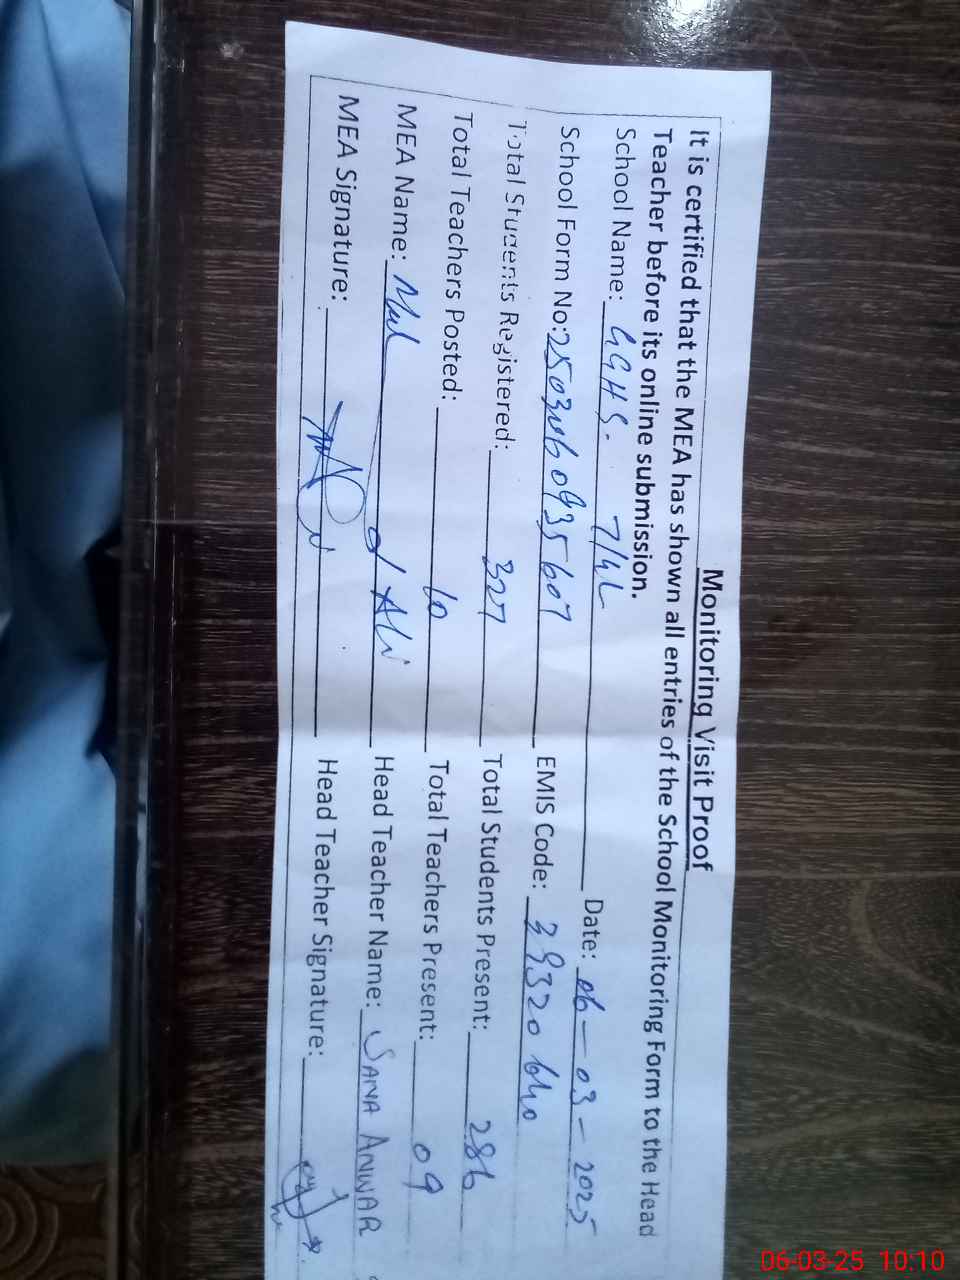 Monitoring Visit Proof
It is certified that the MEA has shown all entries of the School Monitoring Form to the Head
Teacher before its online submission.
School Name: GGHS. 7/4L Date: 06-03-2025
School Form No: EMIS Code: 39320640
Total Students Registered: 327 Total Students Present: 286
Total Teachers Posted: 10 Total Teachers Present: 09
MEA Name: Ali Head Teacher Name: SANA ANWAR
MEA Signature: Head Teacher Signature:
06-03-25 10:10